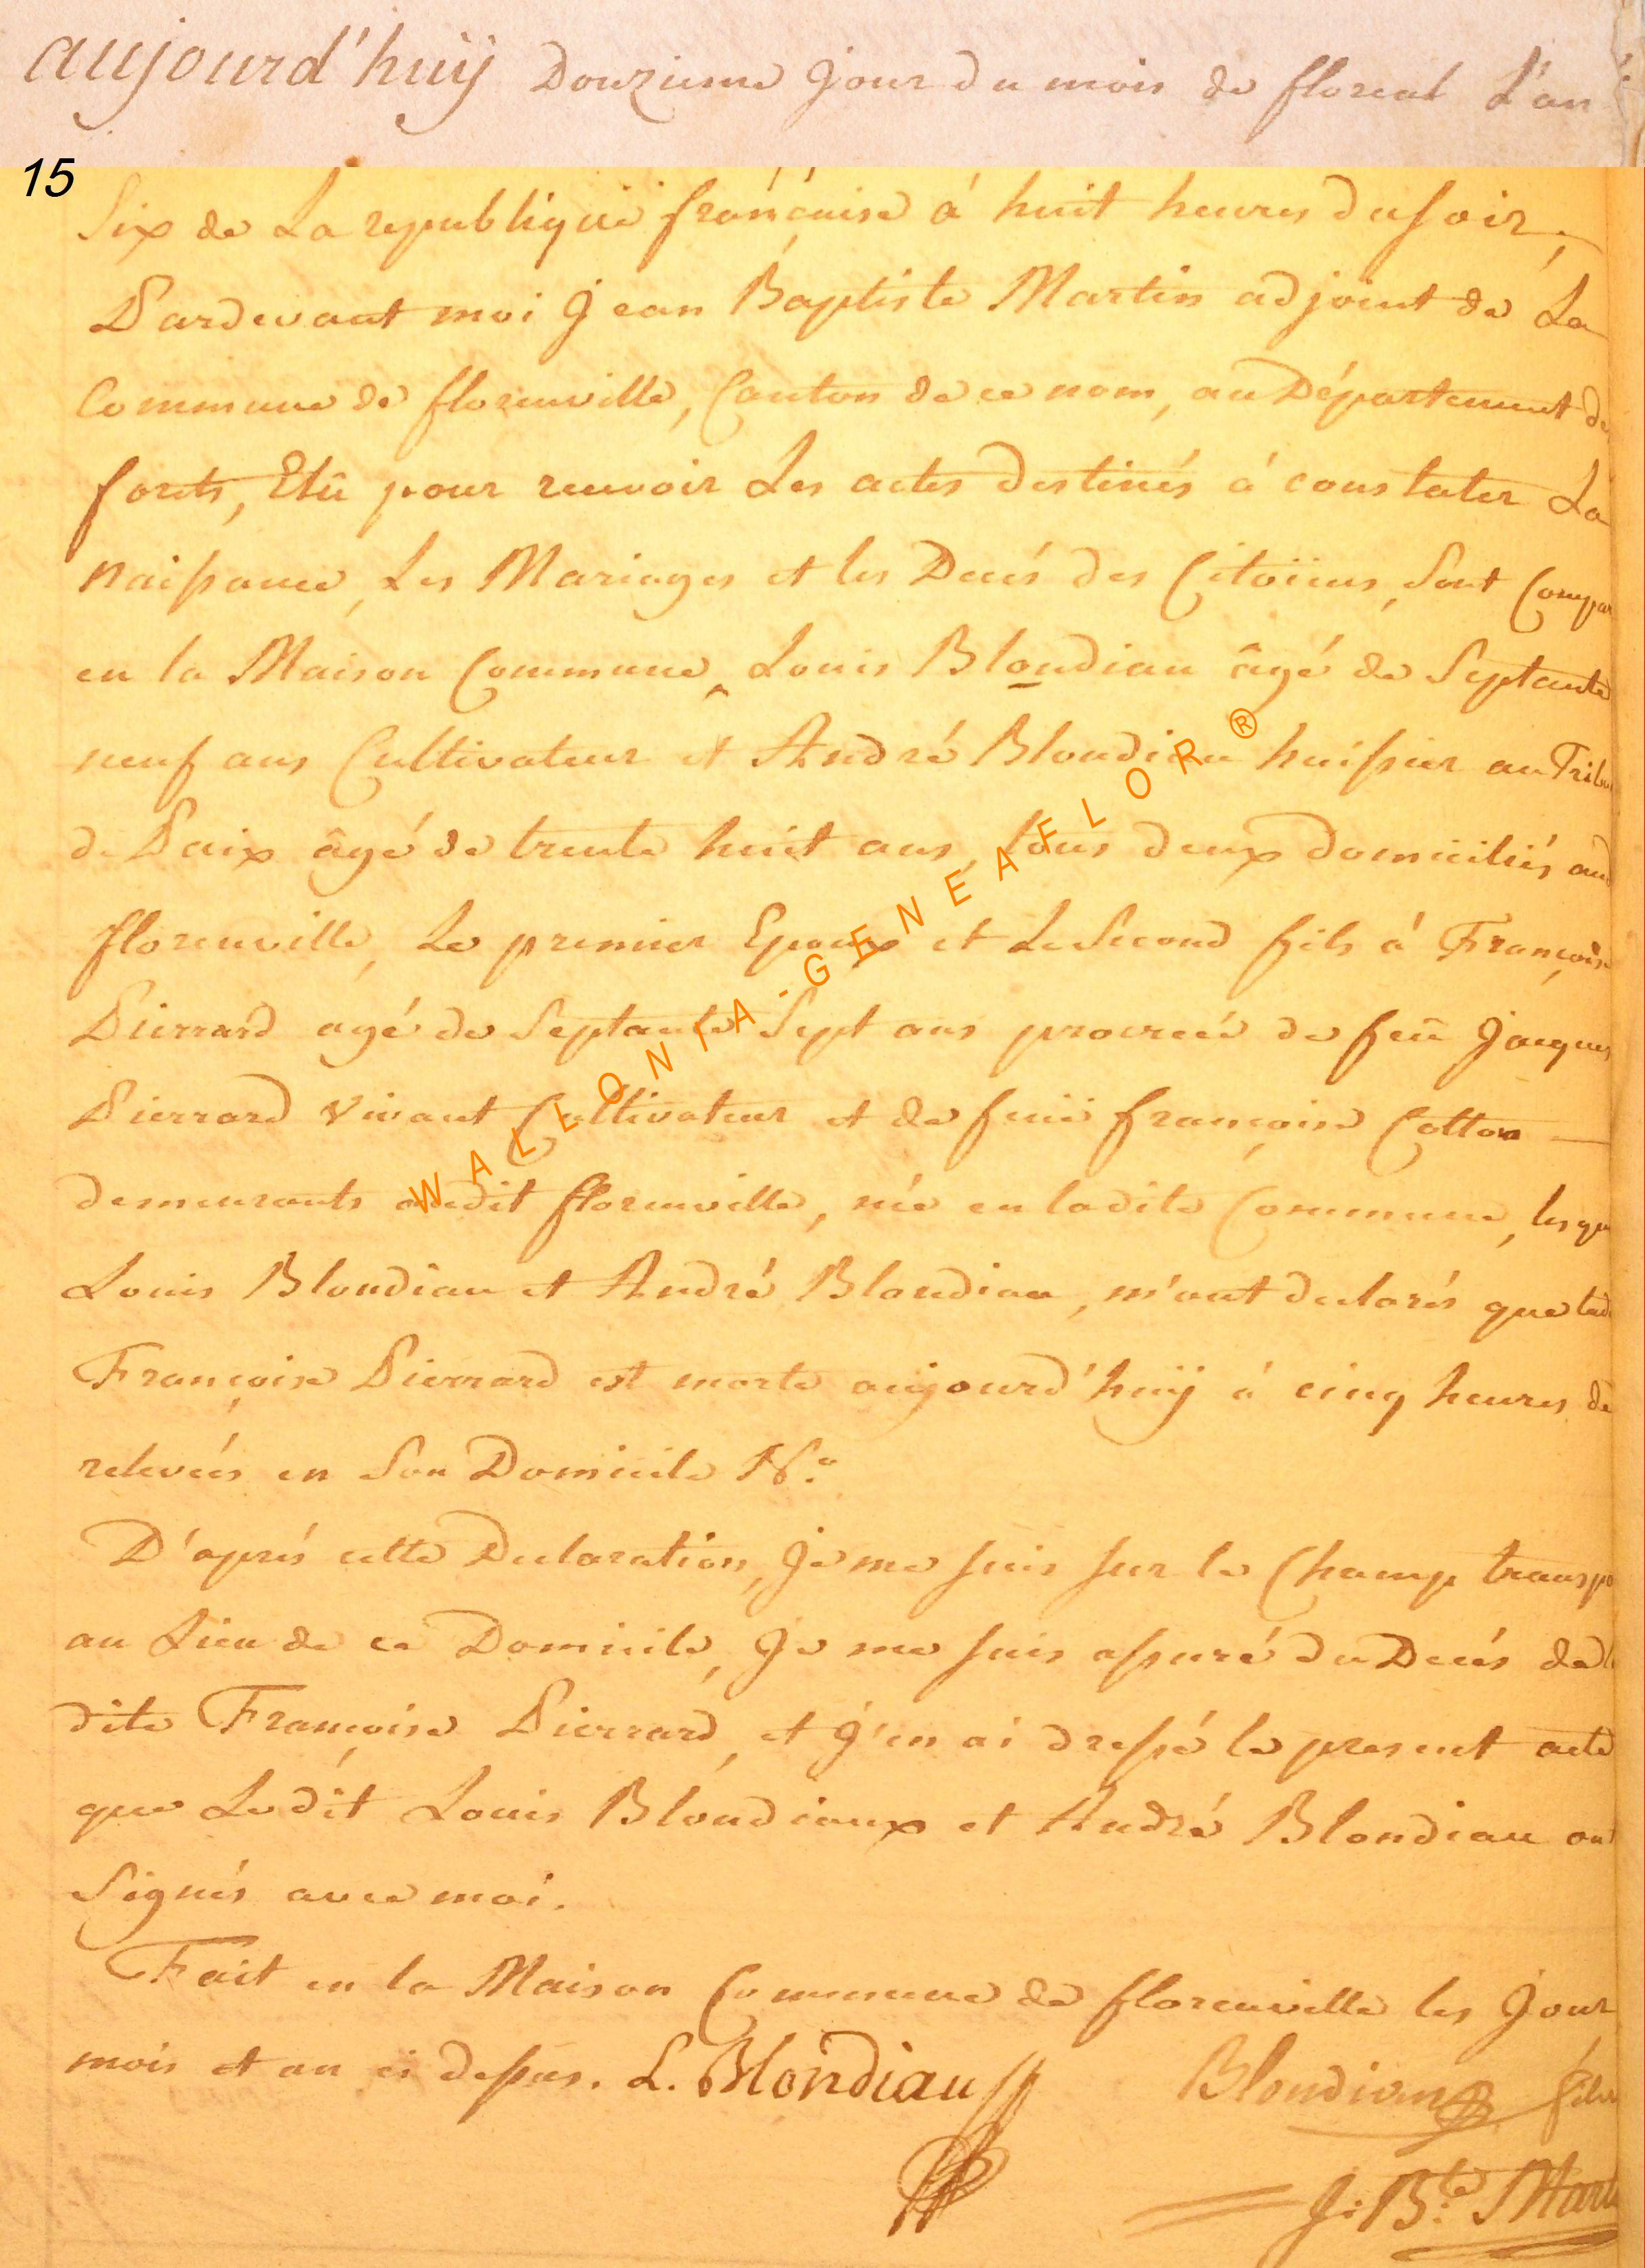 aujourd'huÿ Douzieme Jour du mois de floreal L'an
15
Six de La republique francaise à huit heures du soir,
Pardevant moi Jean Baptiste Martin adjoint de La
Commune de florenville, Canton de ce nom, au Département de
forets, Elû pour recevoir Les actes destinés à constater La
Naissance, Les Mariages et les Decés des Citoïens, Sont Compar
en la Maison Commune, Louis Blondiau âgé de Septante
neuf ans Cultivateur et André Blondiau huissier au Tribu
de Paix âgé de trente huit ans, tous deux domiciliés aud
florenville, Le premier Epoux et Le Second fils à Françoise
Pierrard agé de Septante Sept ans procreée de feû Jacques
Pierrard vivant Cultivateur et de feuë françoise Cotton
demeurants audit florenville, née en ladite Commune, lesque
Louis Blondiau et André Blondiau, m'ont declarés que lad
Françoise Pierrard est morte aujourd'huÿ à cinq heures de
relevées en Son Domicile N.o
D'après cette Declaration, Je me suis sur le Champ transpo
au Lieu de ce Domicile, Je me suis assuré du Decés de la
dite Françoise Pierrard, et J'en ai dressé le present acte
que Ledit Louis Blondiaux et André Blondiau ont
Signés avec moi.
Fait en la Maison Commune de florenville les Jour
mois et an ci dessus. L. Blondiau Blondiau fils
J: B:te Marti
WALLONIA-GENEAFLOR®